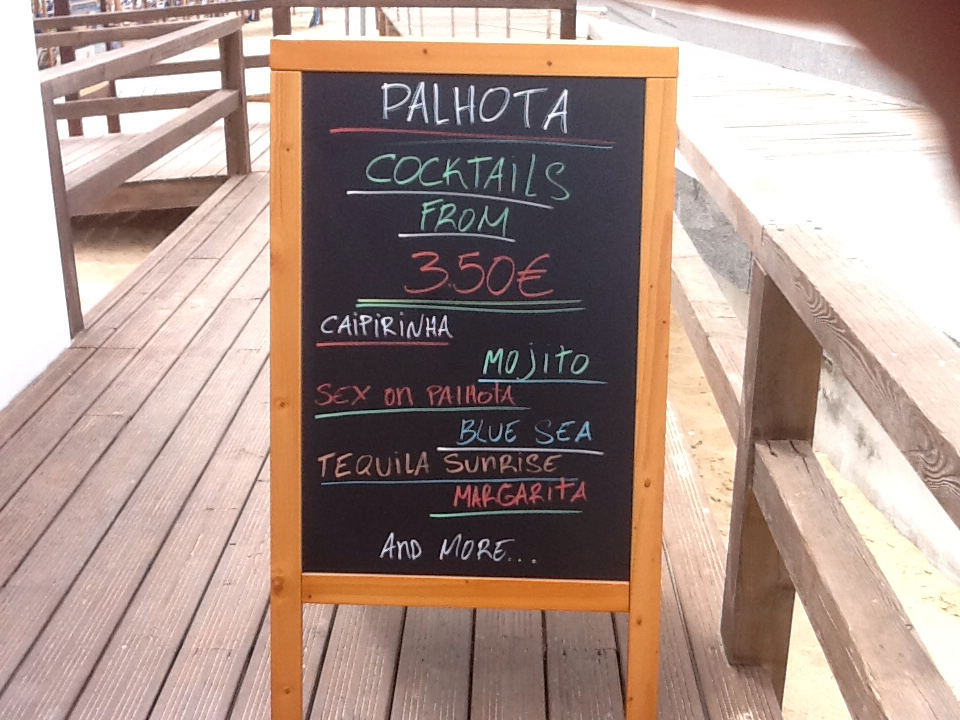 PALHOTA
COCKTAILS
FROM
3.50€
CAIPIRINHA
MOJITO
SEX ON PALHOTA
BLUE SEA
TEQUILA SUNRISE
MARGARITA
AND MORE...